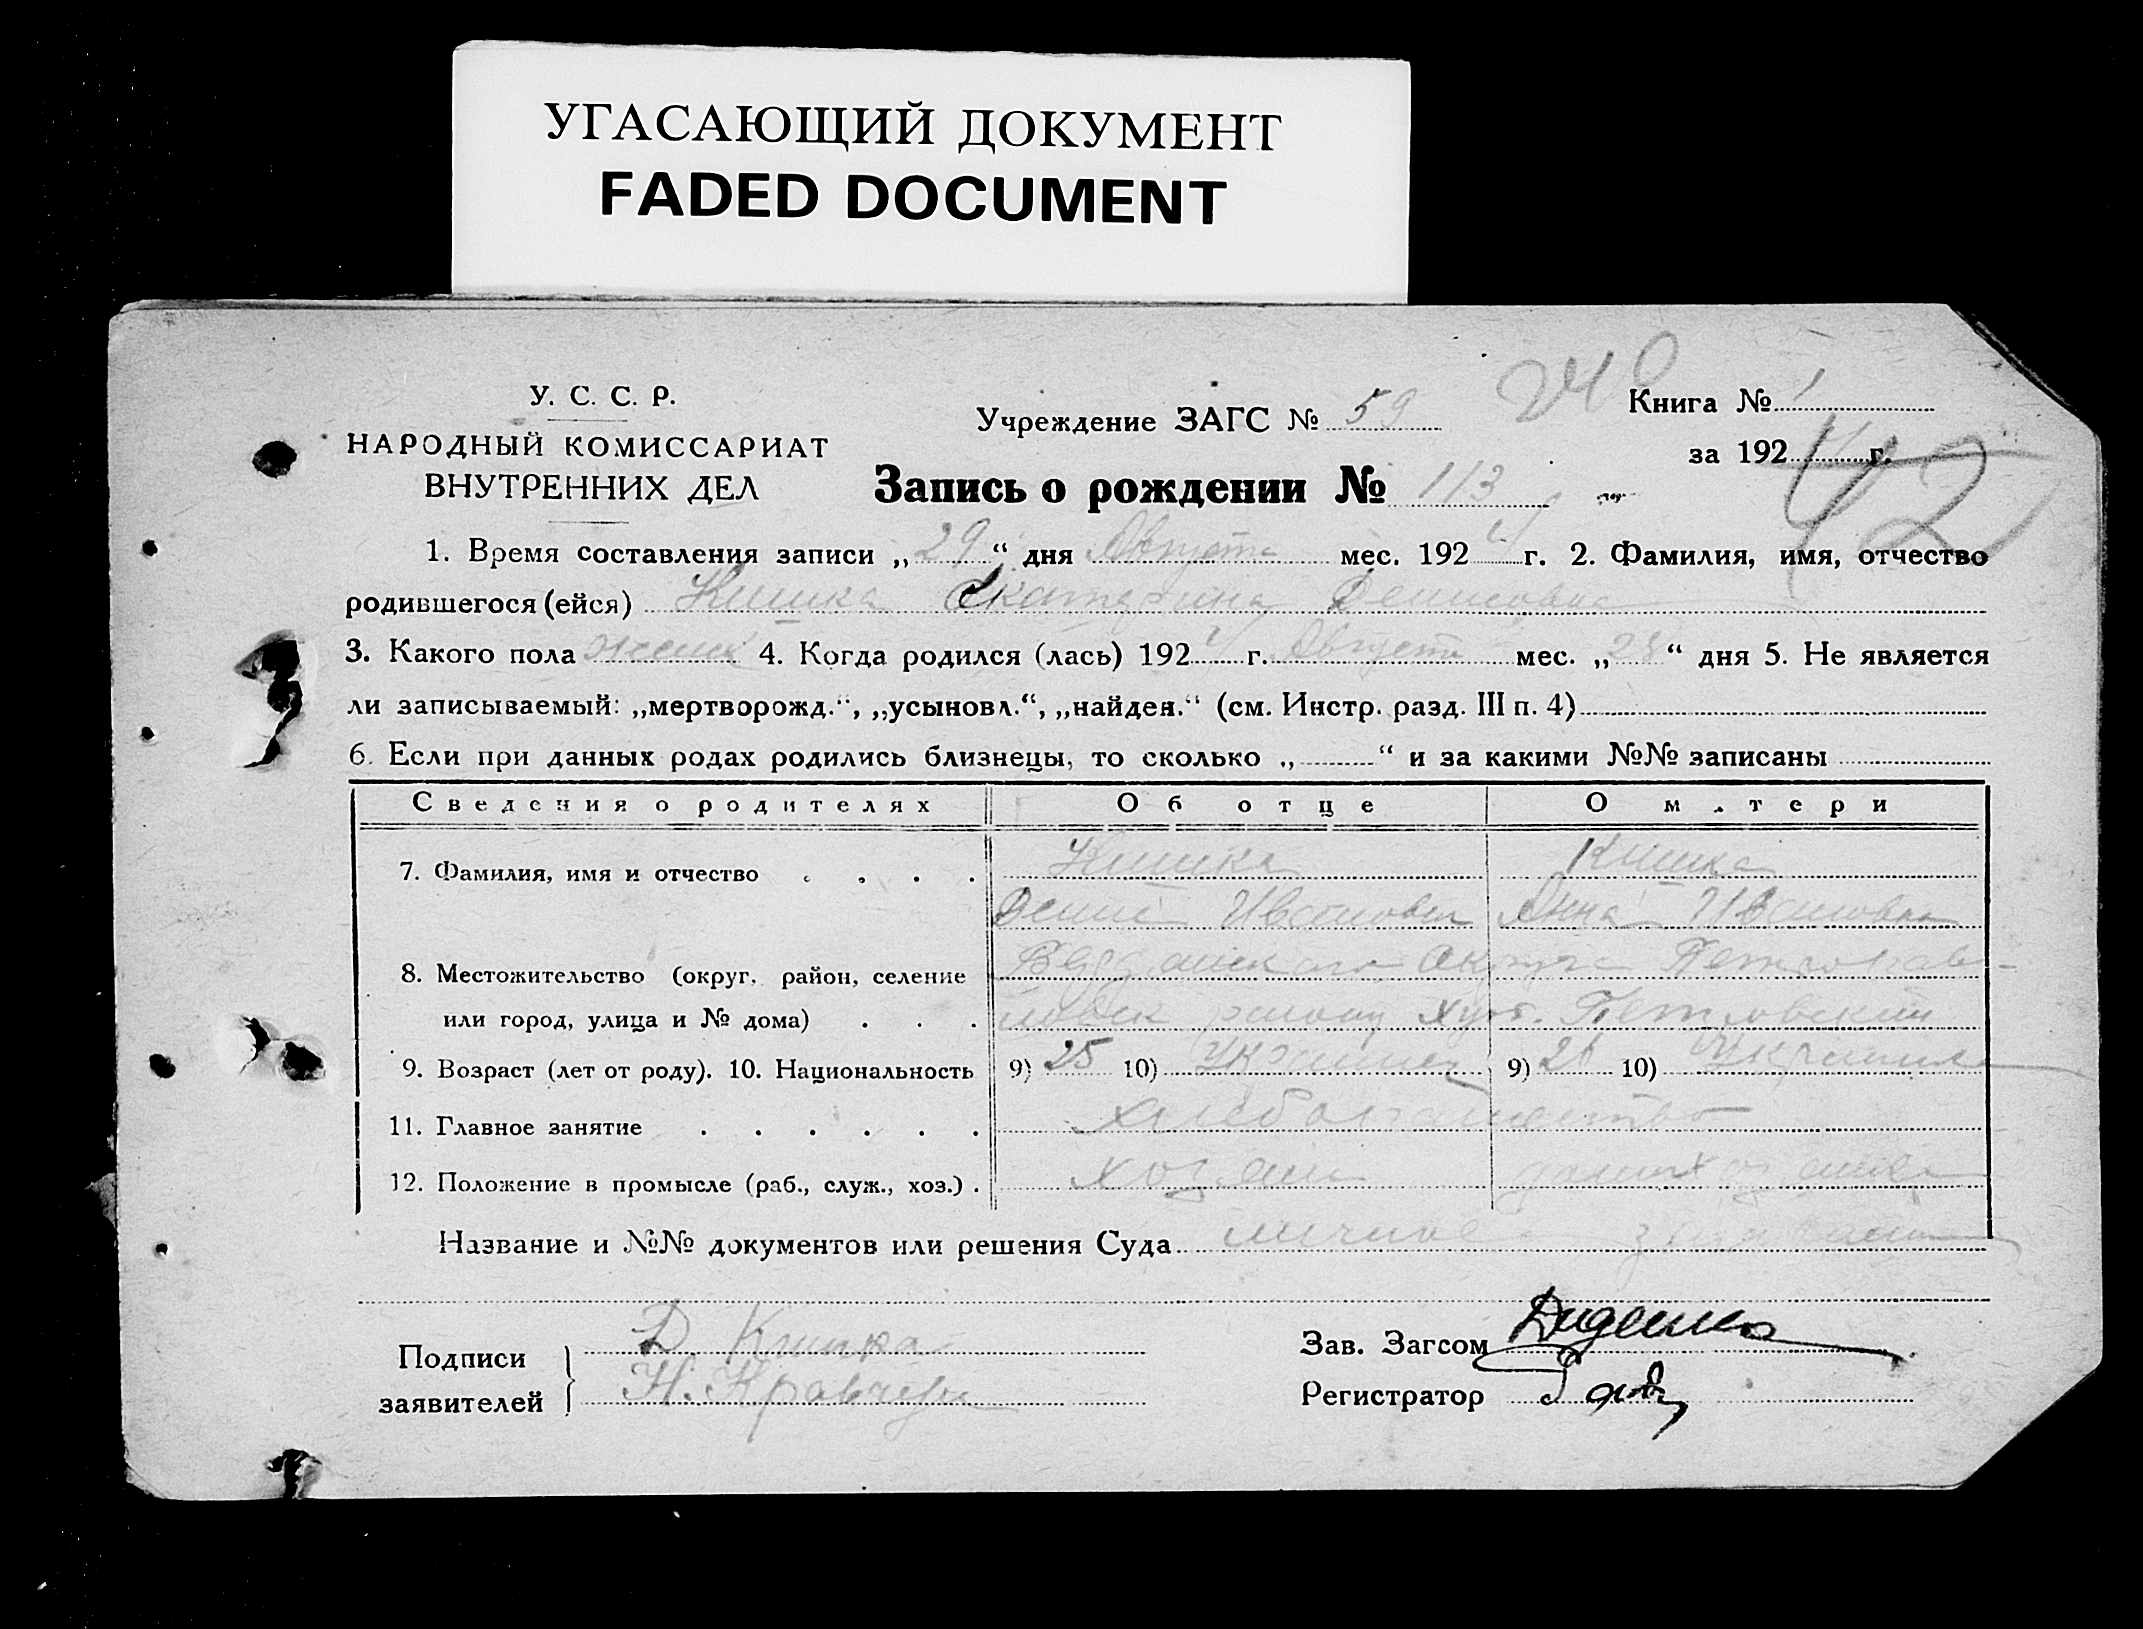 УГАСАЮЩИЙ ДОКУМЕНТ
FADED DOCUMENT
У. С. С. Р.
НАРОДНЫЙ КОМИССАРИАТ
ВНУТРЕННИХ ДЕЛ
Учреждение ЗАГС № 59
240
Книга № 1
за 192 4 г.
42
Запись о рождении № 113
1. Время составления записи „ 29 “ дня Августа мес. 192 4 г. 2. Фамилия, имя, отчество
родившегося (ейся) Кишка Екатерина Денисовна
3. Какого пола женск 4. Когда родился (лась) 192 4 г. Август мес. „ 28 “ дня 5. Не является
ли записываемый: „мертворожд.“, „усыновл.“, „найден.“ (см. Инстр. разд. III п. 4)
6. Если при данных родах родились близнецы, то сколько „ “ и за какими №№ записаны
Сведения о родителях Об отце О матери
7. Фамилия, имя и отчество Кишка Кишка
Денис Иванович Анна Ивановна
8. Местожительство (округ, район, селение Бердянского Округа
или город, улица и № дома) району хут. Петровский
9. Возраст (лет от роду). 10. Национальность 9) 25 10) Украинец 9) 26 10) Украинка
11. Главное занятие хлебопашество
12. Положение в промысле (раб., служ., хоз.) хозяин домихозяйка
Название и №№ документов или решения Суда личное заявление
Подписи заявителей
Д Кишка
Н. Кравчун
Зав. Загсом Диденко
Регистратор